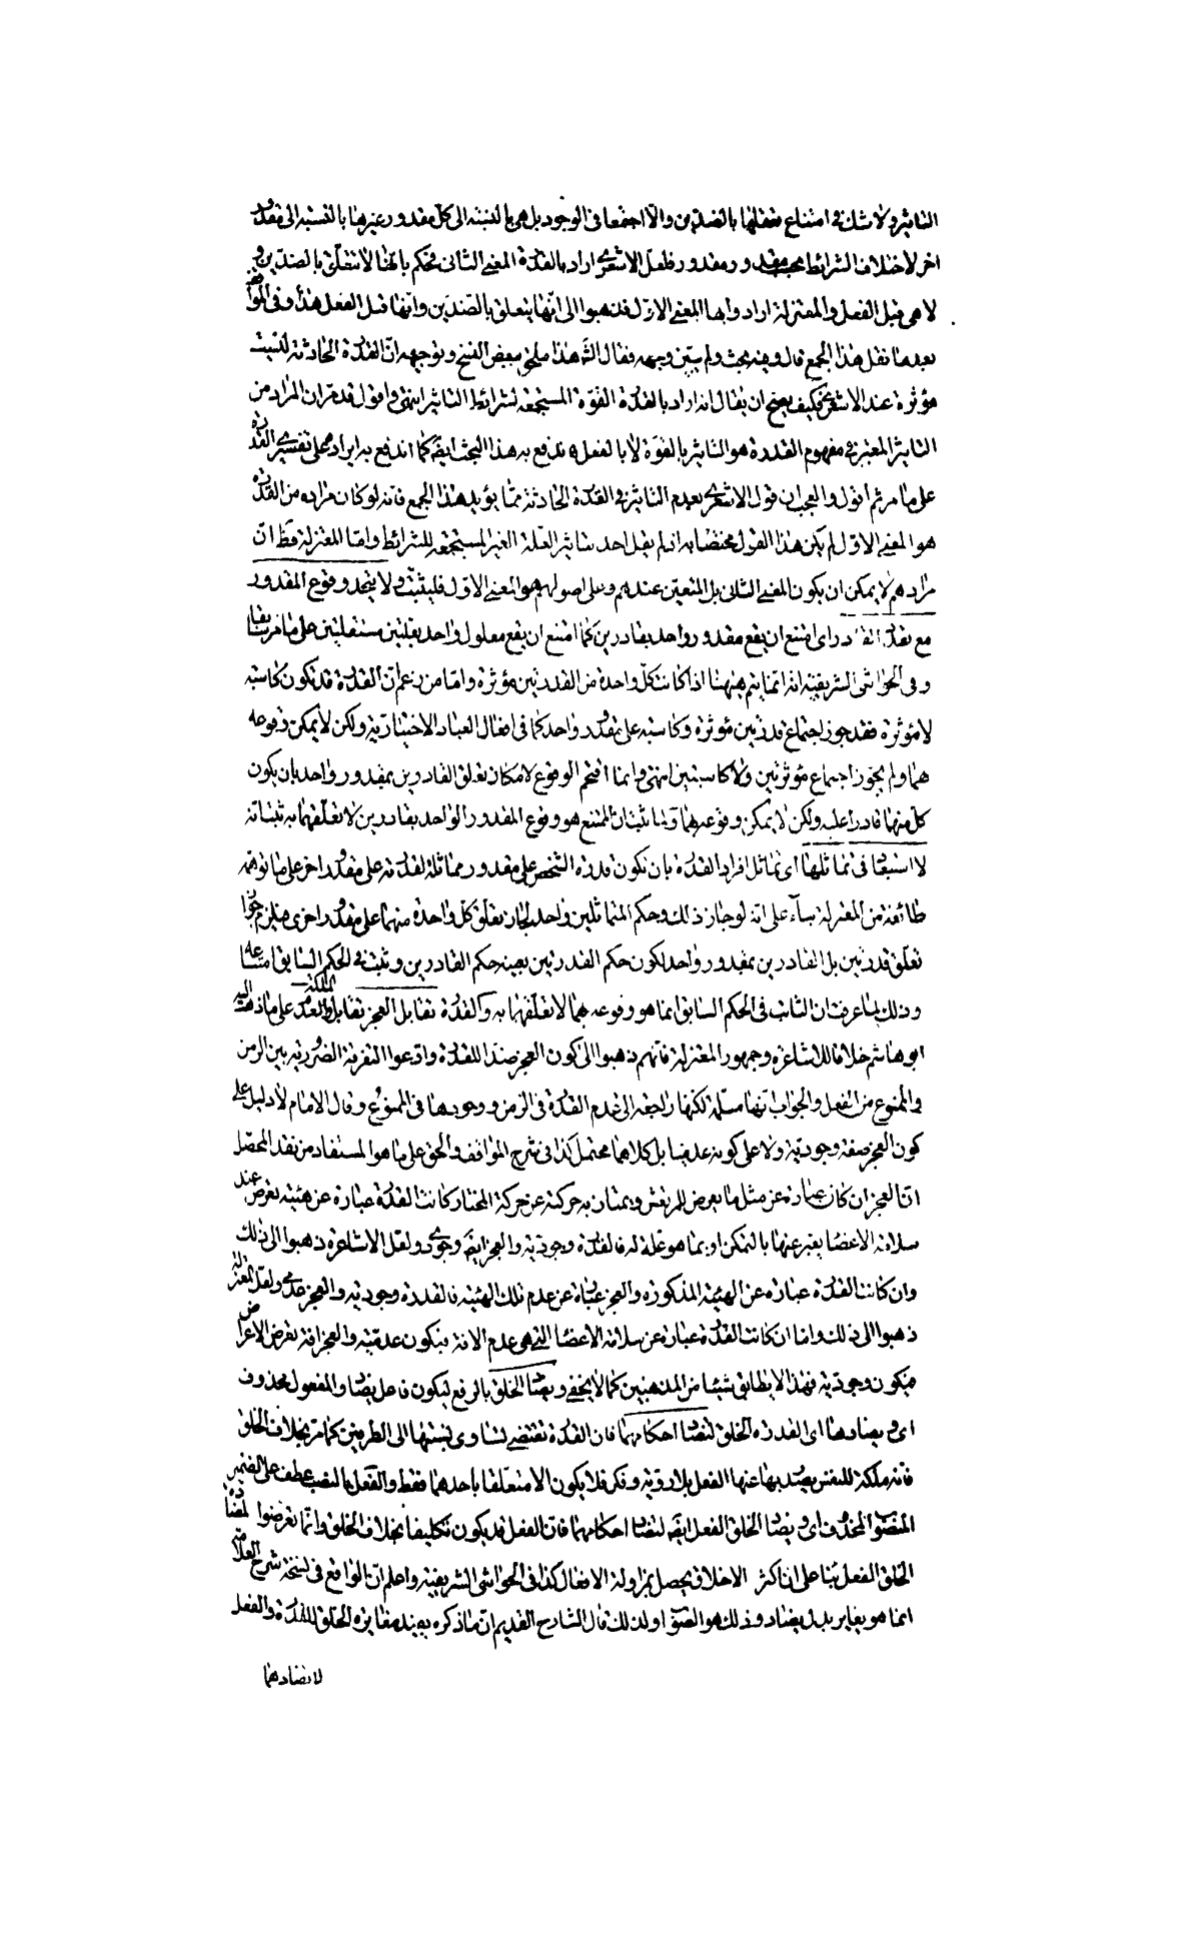 التاثير ولا شك فى امتناع تعلقها بالضدين والا اجتمعا فى الوجود بل هى بالنسبة الى كل مقدور غيرها بالنسبة الى مقدور
اخر لاختلاف الشرائط بحسب مقدور ومقدور فلعل الاشعرى اراد بالقدرة المعنى الثانى فحكم بانها لا تتعلق بالضدين و
لا هى قبل الفعل والمعتزلة ارادوا بها المعنى الاول فذهبوا الى انها يتعلق بالضدين وانها قبل الفعل هذا وفى المواقف
بعد ما نقل هذا الجمع قال وفيه بحث ولم يبين وجهه فقال الش هذا ملحق ببعض النسخ وتوجيهه ان القدرة الحادثة ليست
مؤثرة عند الاشعرى فكيف يصح ان يقال انه اراد بالقدرة القوة المستجمعة لشرائط التاثير انتهى واقول قد مر ان المراد من
التاثير المعتبر فى مفهوم القدرة هو التاثير بالقوة لا بالفعل فاندفع به هذا البحث ايضا كما اندفع به ايراد محلى تفسير القدرة
على ما مر ثم اقول والعجب ان قول الاشعرى بعدم التاثير فى القدرة الحادثة مما يؤيد هذا الجمع فانه لو كان مراده من القدرة
هو المعنى الاول لم يكن هذا القول مختصا به اذ لم يقل احد بتاثير العلة الغير المستجمعة للشرائط واما المعتزلة فظ ان
مرادهم لا يمكن ان يكون المعنى الثانى بل المتعين عندهم وعلى اصولهم هو المعنى الاول فليتثبت ولا يتحد وقوع المقدور
مع تعدد القادر اى امتنع ان يقع مقدور واحد بقادرين كما امتنع ان يقع معلول واحد بعلتين مستقلتين على ما مر سابقا
وفى الحواشى الشريفية انه انما يتم بينهما اذا كانت كل واحدة من القدرتين مؤثرة واما من زعم ان القدرة قد تكون كاسبة
لا مؤثرة فقد جوز اجتماع قدرتين مؤثرة وكاسبة على مقدور واحد كما فى افعال العباد الاختيارية ولكن لا يمكن وقوعه
بهما ولم يجوز اجتماع مؤثرتين ولا كاسبتين انتهى وانما اقحم الوقوع لامكان تعلق القادرين بمقدور واحد بان يكون
كل منهما قادرا عليه ولكن لا يمكن وقوعه بهما ولما ثبت ان الممتنع هو وقوع المقدور الواحد بقادرين لا تعلقهما به ثبت انه
لا استبعاد فى تماثلها اى تماثل افراد القدرة بان تكون قدرة الشخص على مقدور مماثلة لقدرته على مقدور اخر على ما توهمه
طائفة من المعتزلة بناء على انه لو جاز ذلك وحكم المتماثلين واحد لجاز تعلق كل واحدة منهما على مقدور اخرى فيلزم جواز
تعلق قدرتين بل القادرين بمقدور واحد لكون حكم القدرتين بعينه حكم القادرين وثبت فى الحكم السابق امتناعه
وذلك لما عرفت ان الثابت فى الحكم السابق انما هو وقوعه بهما لا تعلقهما به والقدرة تقابل العجز تقابل الملكة والعدم على ما ذهب اليه
ابو هاشم خلافا للاشاعرة وجمهور المعتزلة فانهم ذهبوا الى كون العجز ضدا للقدرة وادعوا التفرقة الضرورية بين الزمن
والممنوع من الفعل والجواب انها مسلمة لكنها راجعة الى عدم القدرة فى الزمن ووجودها فى الممنوع وقال الامام لا دليل على
كون العجز صفة وجودية ولا على كونه عدميا بل كلاهما محتمل كذا فى شرح المواقف والحق على ما هو المستفاد من نقد المحصل
ان العجز ان كان عبارة عن مثل ما يعرض للمرتعش ويمتاز به حركته عن حركة المختار كانت القدرة عبارة عن هيئة تعرض عند
سلامة الاعضا يعبر عنها بالتمكن او بما هو علة له فالقدرة وجودية والعجز ايضا وجودى ولعل الاشاعرة ذهبوا الى ذلك
وان كانت القدرة عبارة عن الهيئة المذكورة والعجز عبارة عن عدم تلك الهيئة فالقدرة وجودية والعجز عدمى ولعل المعتزلة
ذهبوا الى ذلك واما ان كانت القدرة عبارة عن سلامة الاعضا التى هى عدم الافة فيكون عدمية والعجز افة تعرض الاعراض
فيكون وجودية فهذا لا يطابق شيئا من المذهبين كما لا يخفى ويضاد الخلق بالرفع ليكون فاعل يضاد والمفعول محذوف
اى ويضادها اى القدرة الخلق لتضاد احكامهما فان القدرة تقتضى تساوى نسبتها الى الطرفين كما مر بخلاف الخلق
فانه ملكة للنفس يصدر بها عنها الفعل بلا روية وفكر فلا يكون الا متعلقا باحدهما فقط والفعل بالنصب عطف على الضمير
المنصوب المحذوف اى ويضاد الخلق الفعل ايضا لتضاد احكامهما فان الفعل قد يكون تكليفا بخلاف الخلق وانما تعرضوا لمضادة
الخلق الفعل بناء على ان اكثر الاخلاق يحصل بمزاولة الافعال كذا فى الحواشى الشريفية واعلم ان الواقع فى نسخة شرح العلامة
انما هو يغاير بدل يضاد وذلك هو الصواب ولذلك قال الشارح القديم ان ما ذكره يفيد مغايرة الخلق للقدرة والفعل
لا تضادهما